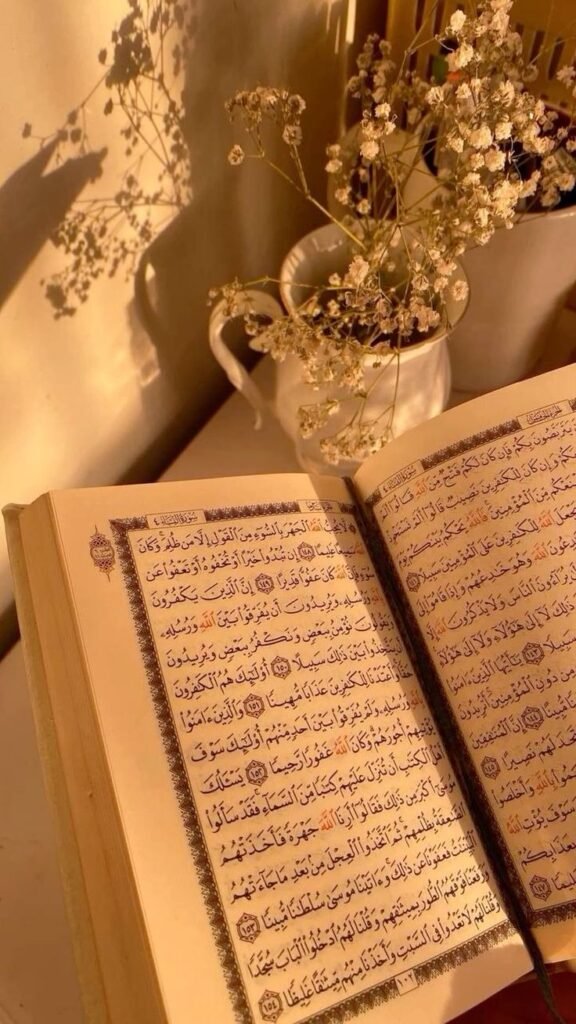 سُورَةُ النِّسَاءِ ٤
يَتَرَبَّصُونَ بِكُمْ فَإِن كَانَ لَكُمْ فَتْحٌ مِّنَ ٱللَّهِ قَالُوٓا۟ أَلَمْ
وَإِن كَانَ لِلْكَٰفِرِينَ نَصِيبٌ قَالُوٓا۟ أَلَمْ نَسْتَحْوِذْ
وَنَمْنَعْكُم مِّنَ ٱلْمُؤْمِنِينَ فَٱللَّهُ يَحْكُمُ بَيْنَكُمْ
يَجْعَلَ ٱللَّهُ لِلْكَٰفِرِينَ عَلَى ٱلْمُؤْمِنِينَ سَبِيلًا ١٤١
ٱللَّهَ وَهُوَ خَٰدِعُهُمْ وَإِذَا قَامُوٓا۟ إِلَى
يُرَآءُونَ ٱلنَّاسَ وَلَا يَذْكُرُونَ ٱللَّهَ
ذَٰلِكَ لَآ إِلَىٰ هَٰٓؤُلَآءِ وَلَآ إِلَىٰ هَٰٓؤُلَآءِ
١٤٣ يَٰٓأَيُّهَا ٱلَّذِينَ ءَامَنُوا۟
مِن دُونِ ٱلْمُؤْمِنِينَ أَتُرِيدُونَ
مُّبِينًا ١٤٤ إِنَّ ٱلْمُنَٰفِقِينَ
لَهُمْ نَصِيرًا ١٤٥
بِٱللَّهِ وَأَخْلَصُوا۟
سَوْفَ يُؤْتِ ٱللَّهُ
بِعَذَابِكُمْ
عَلِيمًا ١٤٧
سُورَةُ النِّسَاءِ ٤
لَّا يُحِبُّ ٱللَّهُ ٱلْجَهْرَ بِٱلسُّوٓءِ مِنَ ٱلْقَوْلِ إِلَّا مَن ظُلِمَ وَكَانَ
ٱللَّهُ سَمِيعًا عَلِيمًا ١٤٨ إِن تُبْدُوا۟ خَيْرًا أَوْ تُخْفُوهُ أَوْ تَعْفُوا۟ عَن
سُوٓءٍ فَإِنَّ ٱللَّهَ كَانَ عَفُوًّا قَدِيرًا ١٤٩ إِنَّ ٱلَّذِينَ يَكْفُرُونَ
بِٱللَّهِ وَرُسُلِهِۦ وَيُرِيدُونَ أَن يُفَرِّقُوا۟ بَيْنَ ٱللَّهِ وَرُسُلِهِۦ
وَيَقُولُونَ نُؤْمِنُ بِبَعْضٍ وَنَكْفُرُ بِبَعْضٍ وَيُرِيدُونَ
أَن يَتَّخِذُوا۟ بَيْنَ ذَٰلِكَ سَبِيلًا ١٥٠ أُو۟لَٰٓئِكَ هُمُ ٱلْكَٰفِرُونَ
حَقًّا وَأَعْتَدْنَا لِلْكَٰفِرِينَ عَذَابًا مُّهِينًا ١٥١ وَٱلَّذِينَ ءَامَنُوا۟
بِٱللَّهِ وَرُسُلِهِۦ وَلَمْ يُفَرِّقُوا۟ بَيْنَ أَحَدٍ مِّنْهُمْ أُو۟لَٰٓئِكَ سَوْفَ
يُؤْتِيهِمْ أُجُورَهُمْ وَكَانَ ٱللَّهُ غَفُورًا رَّحِيمًا ١٥٢ يَسْـَٔلُكَ
أَهْلُ ٱلْكِتَٰبِ أَن تُنَزِّلَ عَلَيْهِمْ كِتَٰبًا مِّنَ ٱلسَّمَآءِ فَقَدْ سَأَلُوا۟
مُوسَىٰٓ أَكْبَرَ مِن ذَٰلِكَ فَقَالُوٓا۟ أَرِنَا ٱللَّهَ جَهْرَةً فَأَخَذَتْهُمُ
ٱلصَّٰعِقَةُ بِظُلْمِهِمْ ثُمَّ ٱتَّخَذُوا۟ ٱلْعِجْلَ مِنۢ بَعْدِ مَا جَآءَتْهُمُ
ٱلْبَيِّنَٰتُ فَعَفَوْنَا عَن ذَٰلِكَ وَءَاتَيْنَا مُوسَىٰ سُلْطَٰنًا مُّبِينًا ١٥٣
وَرَفَعْنَا فَوْقَهُمُ ٱلطُّورَ بِمِيثَٰقِهِمْ وَقُلْنَا لَهُمُ ٱدْخُلُوا۟ ٱلْبَابَ سُجَّدًا
وَقُلْنَا لَهُمْ لَا تَعْدُوا۟ فِى ٱلسَّبْتِ وَأَخَذْنَا مِنْهُم مِّيثَٰقًا غَلِيظًا ١٥٤
١٠٢